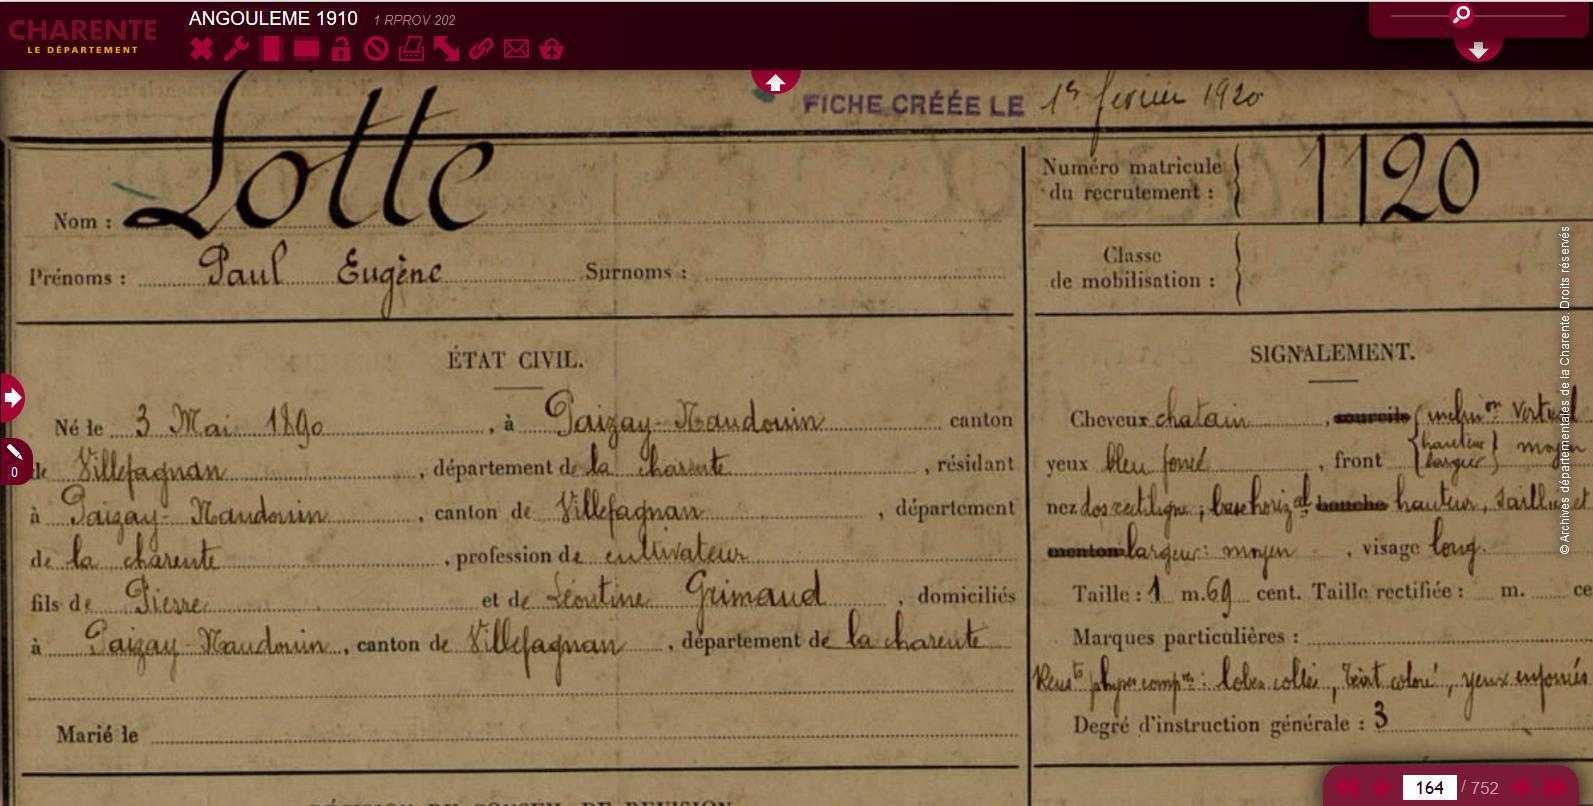 CHARENTE
LE DÉPARTEMENT
ANGOULEME 1910 1 RPROV 202
FICHE CRÉÉE LE 1er février 1920
Nom : Lotte
Prénoms : Paul Eugène Surnoms :
Numéro matricule du recrutement : 1120
Classe de mobilisation :
ÉTAT CIVIL.
Né le 3 Mai 1890, à Paizay-Naudouin canton
de Villefagnan, département de la charente, résidant
à Paizay-Naudouin, canton de Villefagnan, département
de la charente, profession de cultivateur
fils de Pierre et de Léontine Grimaud, domiciliés
à Paizay-Naudouin, canton de Villefagnan, département de la charente
Marié le
SIGNALEMENT.
Cheveux chatain, sourcils inclin on Vertical
yeux bleu foncé, front hauteur largeur moyen
nez dos rectiligne; base horiz al bouche hauteur, Saillie et
menton largeur: moyen, visage long.
Taille : 1 m. 69 cent. Taille rectifiée : m. ce
Marques particulières :
Renst physir compre : lobes collés, teint coloré, yeux enfoncés
Degré d'instruction générale : 3
DÉCISION DU CONSEIL DE REVISION
© Archives départementales de la Charente. Droits réservés
0
164 / 752